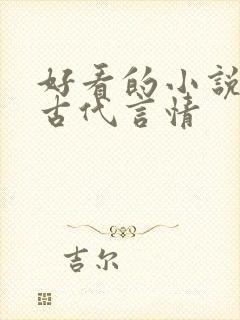 好看的小說
古代言情
吉尔